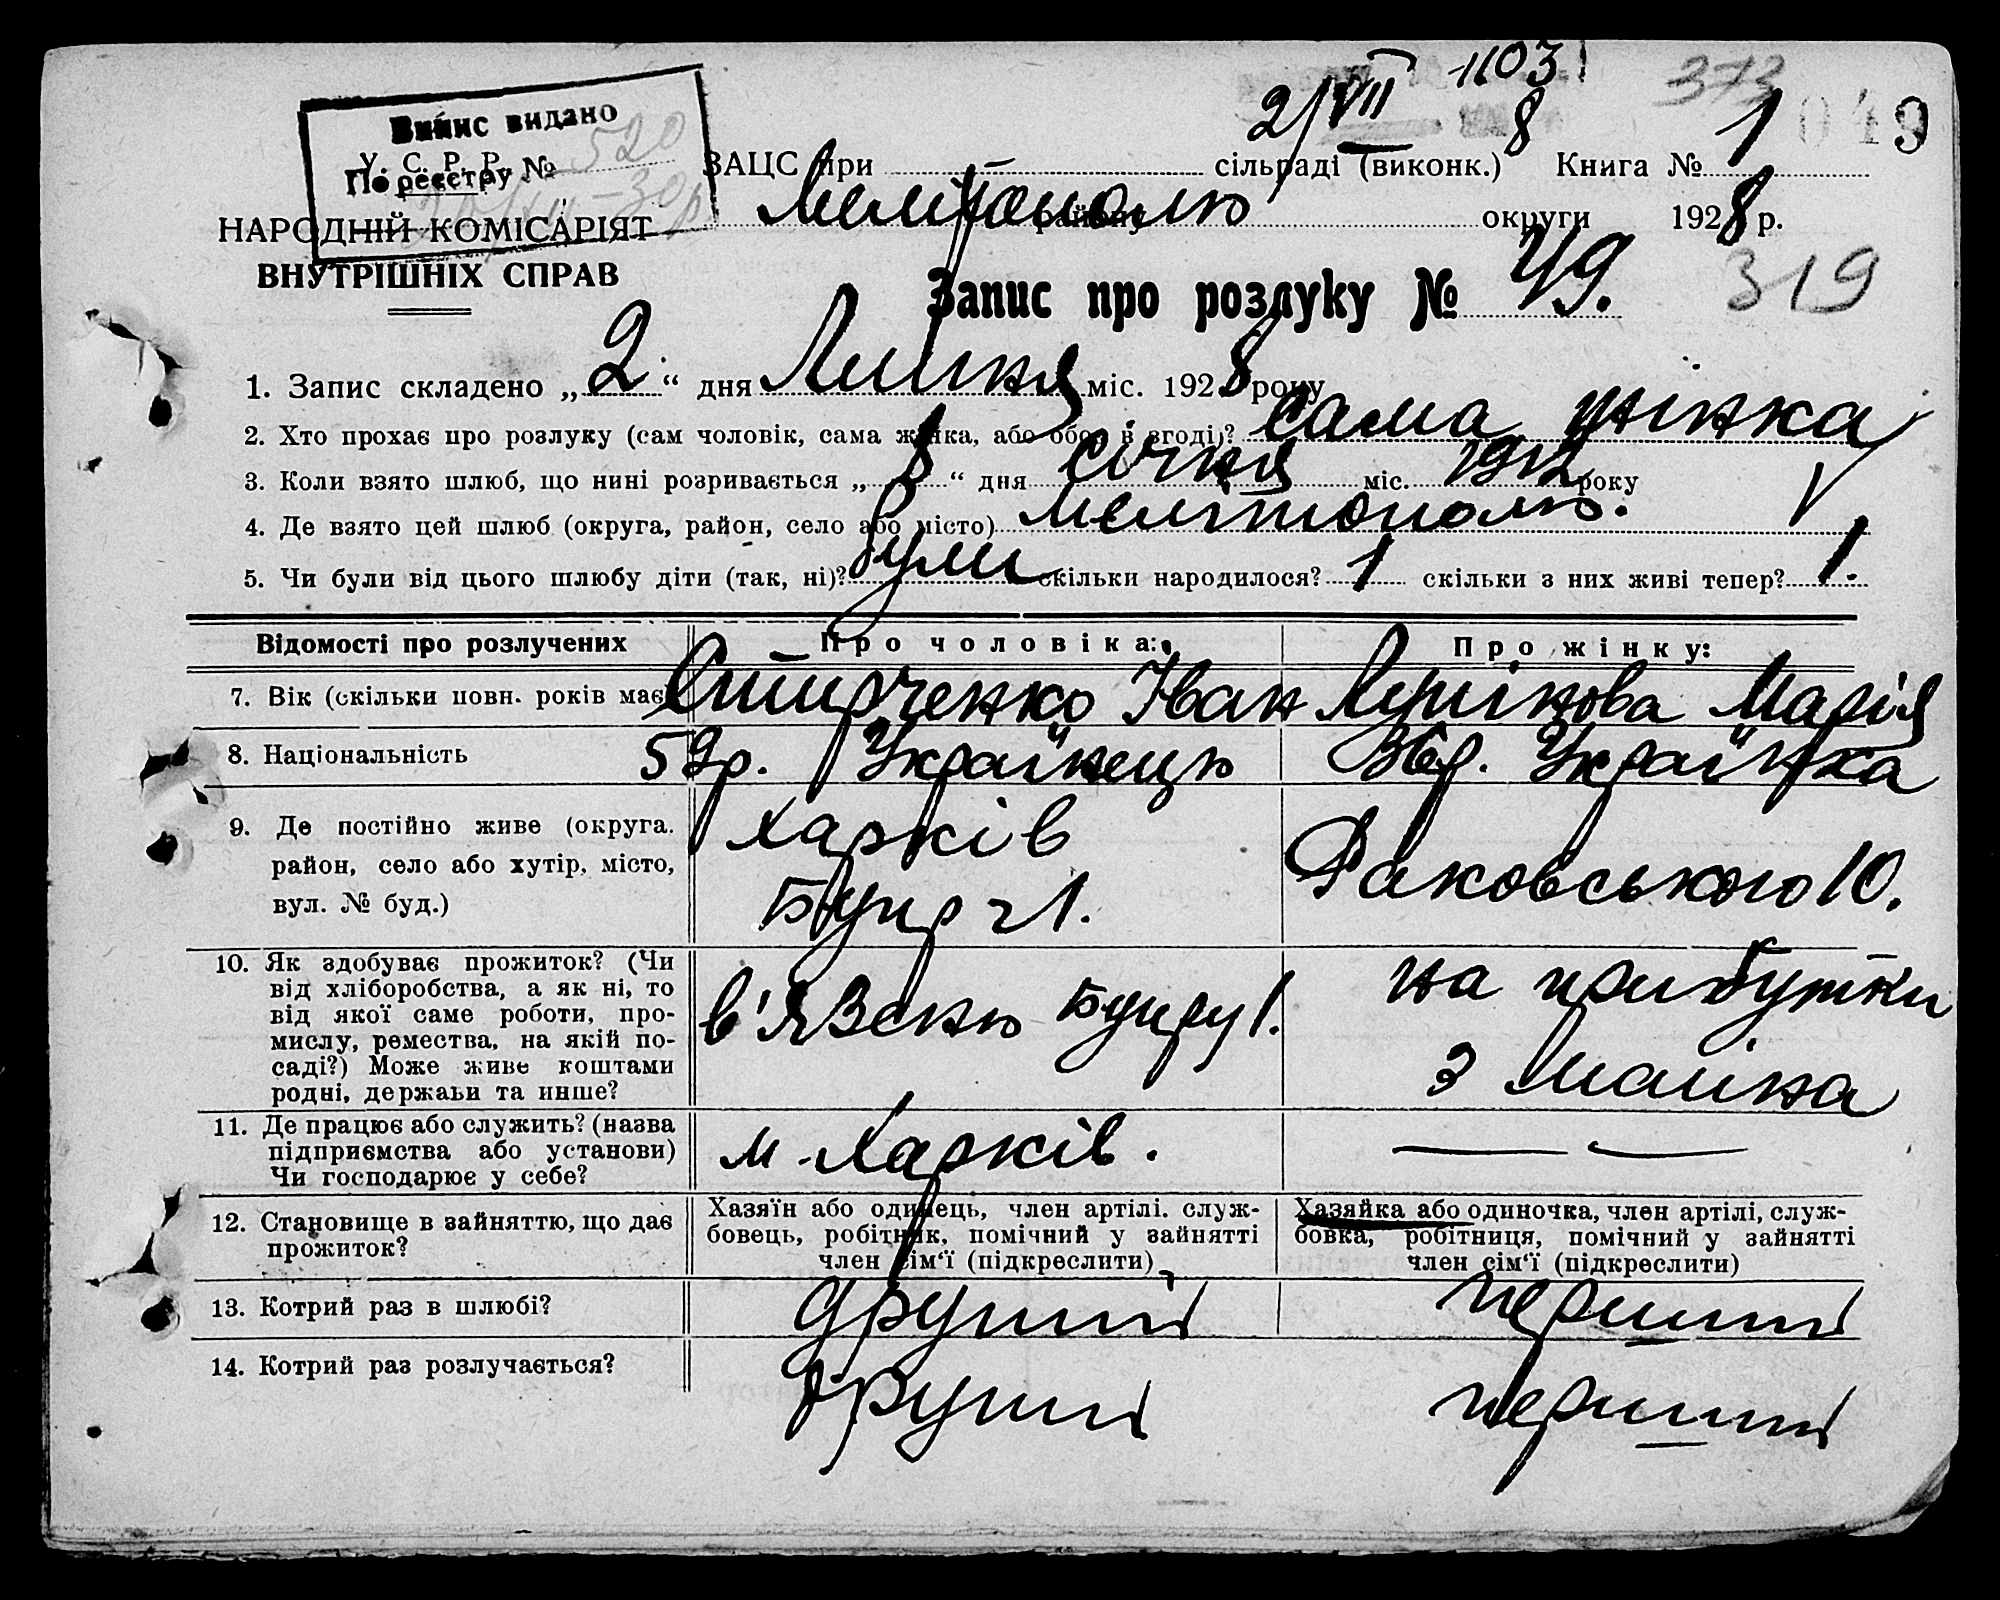 2/VII 8 1103
373
Випис видано
По реєстру № 520
У. С. Р. Р.
НАРОДНІЙ КОМІСАРІЯТ
ВНУТРІШНІХ СПРАВ
ЗАЦС при сільраді (виконк.) Книга № 1 049
Мелітополь району округи 1928 р.
Запис про розлуку № 49. 319
1. Запис складено „2“ дня Липня міс. 1928 року
2. Хто прохає про розлуку (сам чоловік, сама жінка, або обоє в згоді)? сама жінка
3. Коли взято шлюб, що нині розривається „8“ дня січня міс. 1912 року
4. Де взято цей шлюб (округа, район, село або місто) Мелітополь. V
5. Чи були від цього шлюбу діти (так, ні)? були скільки народилося? 1 скільки з них живі тепер? 1.
Відомості про розлучених Про чоловіка: Про жінку:
7. Вік (скільки повн. років має Іван Марія
8. Національність 59р. Українець 36р. Українка
9. Де постійно живе (округа. район, село або хутір, місто, вул. № буд.)
Харків
Бупр ч 1.
Раковського 10.
10. Як здобуває прожиток? (Чи
від хліборобства, а як ні, то
від якої саме роботи, про-
мислу, ремества, на якій по-
саді?) Може живе коштами
родні, держави та инше?
в'язень Бупру 1.
на прибутки
з майна
11. Де працює або служить? (назва
підприємства або установи)
Чи господарює у себе?
м. Харків.
— —
12. Становище в зайняттю, що дає
прожиток?
Хазяїн або одинець, член артілі. служ-
бовець, робітник, помічний у зайнятті
член сім‘ї (підкреслити)
Хазяйка або одиночка, член артілі, служ-
бовка, робітниця, помічний у зайнятті
член сім‘ї (підкреслити)
13. Котрий раз в шлюбі? другий перший
14. Котрий раз розлучається? другий перший